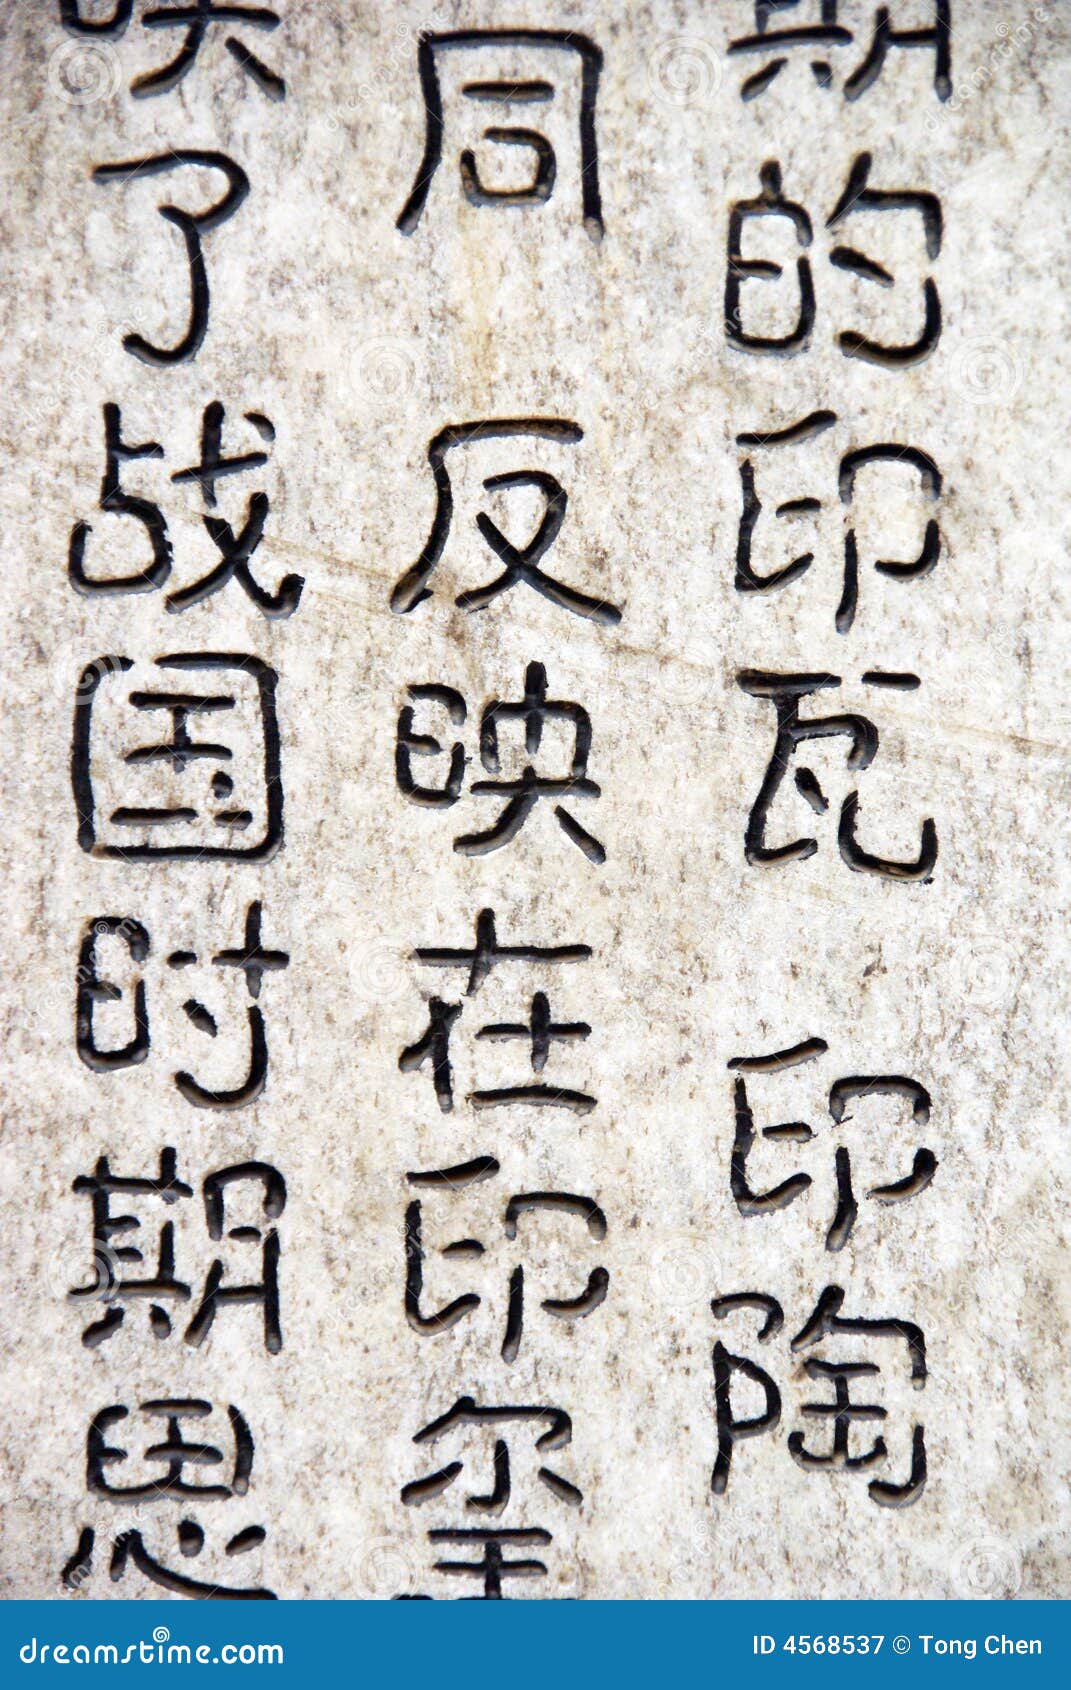 期的印瓦 印陶
同 反映在印玺
映了战国时期思
dreamstime
ID 4568537 © Tong Chen